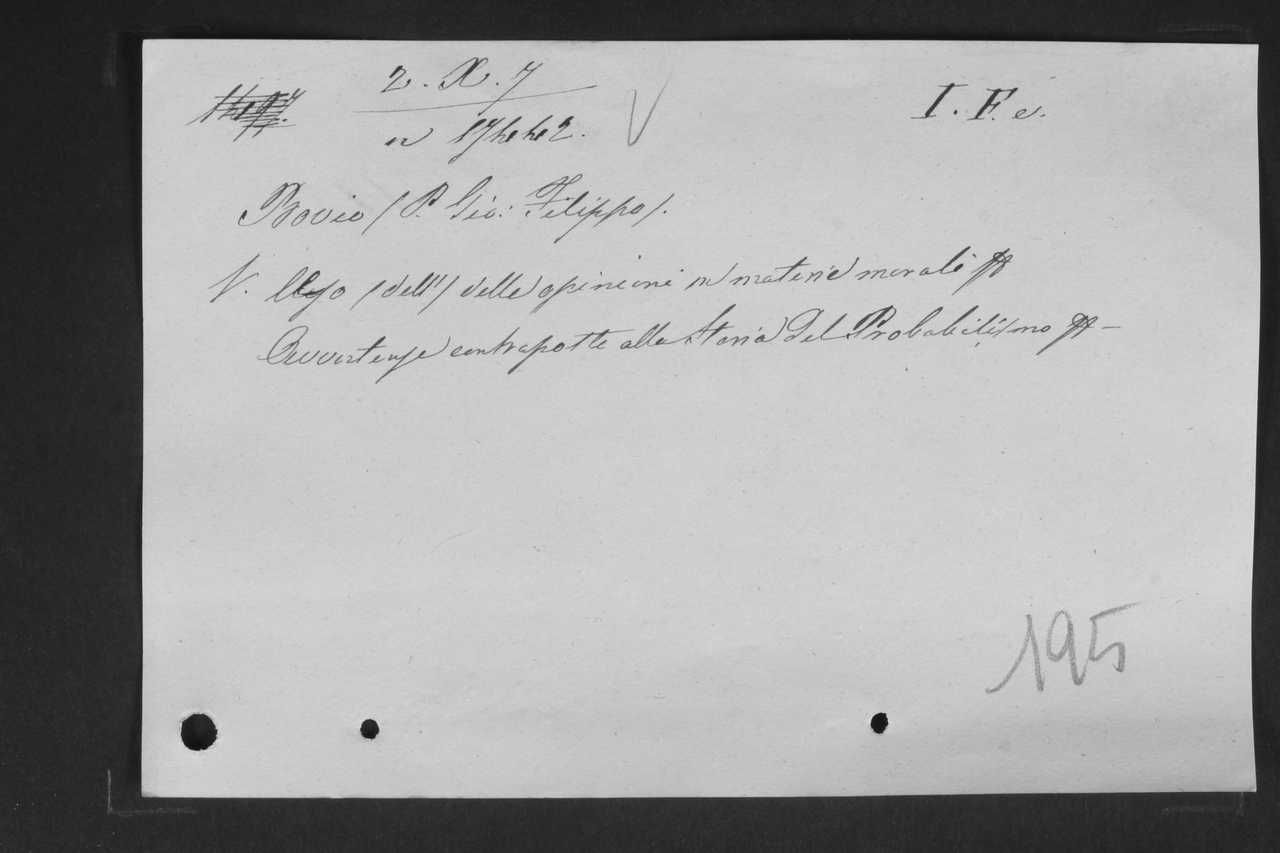 2. X. 7
n 17442.
I. F. e.
Bovio (P. Gio: Filippo).
V. Uso (dell') delle opinioni in materie morali
Avvertenze contraposte alla Storia del Probabilismo
195